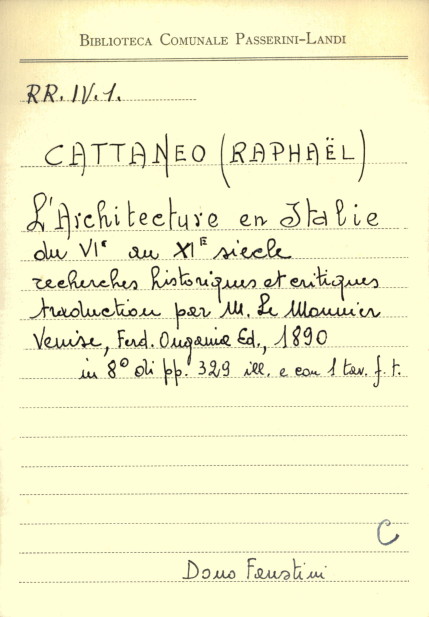 BIBLIOTECA COMUNALE PASSERINI-LANDI
RR. IV. 1.
CATTANEO (RAPHAËL)
L'Architecture en Italie
du VIe au XIE siecle
recherches historiques et critiques
traduction par M. Le Monnier
Venise, Ferd. Ongania Ed., 1890
in 8° di pp. 329 ill. e con 1 tav. f. t.
C
Dono Faustini